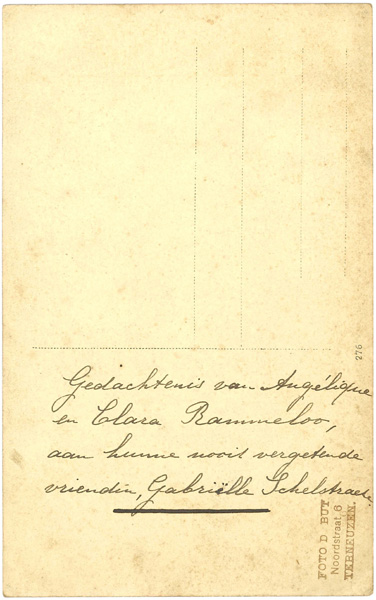 Gedachtenis van Angélique
en Clara Rammeloo,
aan hunne nooit vergetende
vriendin, Gabriëlle Schelstraete.
276
FOTO D. BUT
Noordstraat 6
TERNEUZEN.